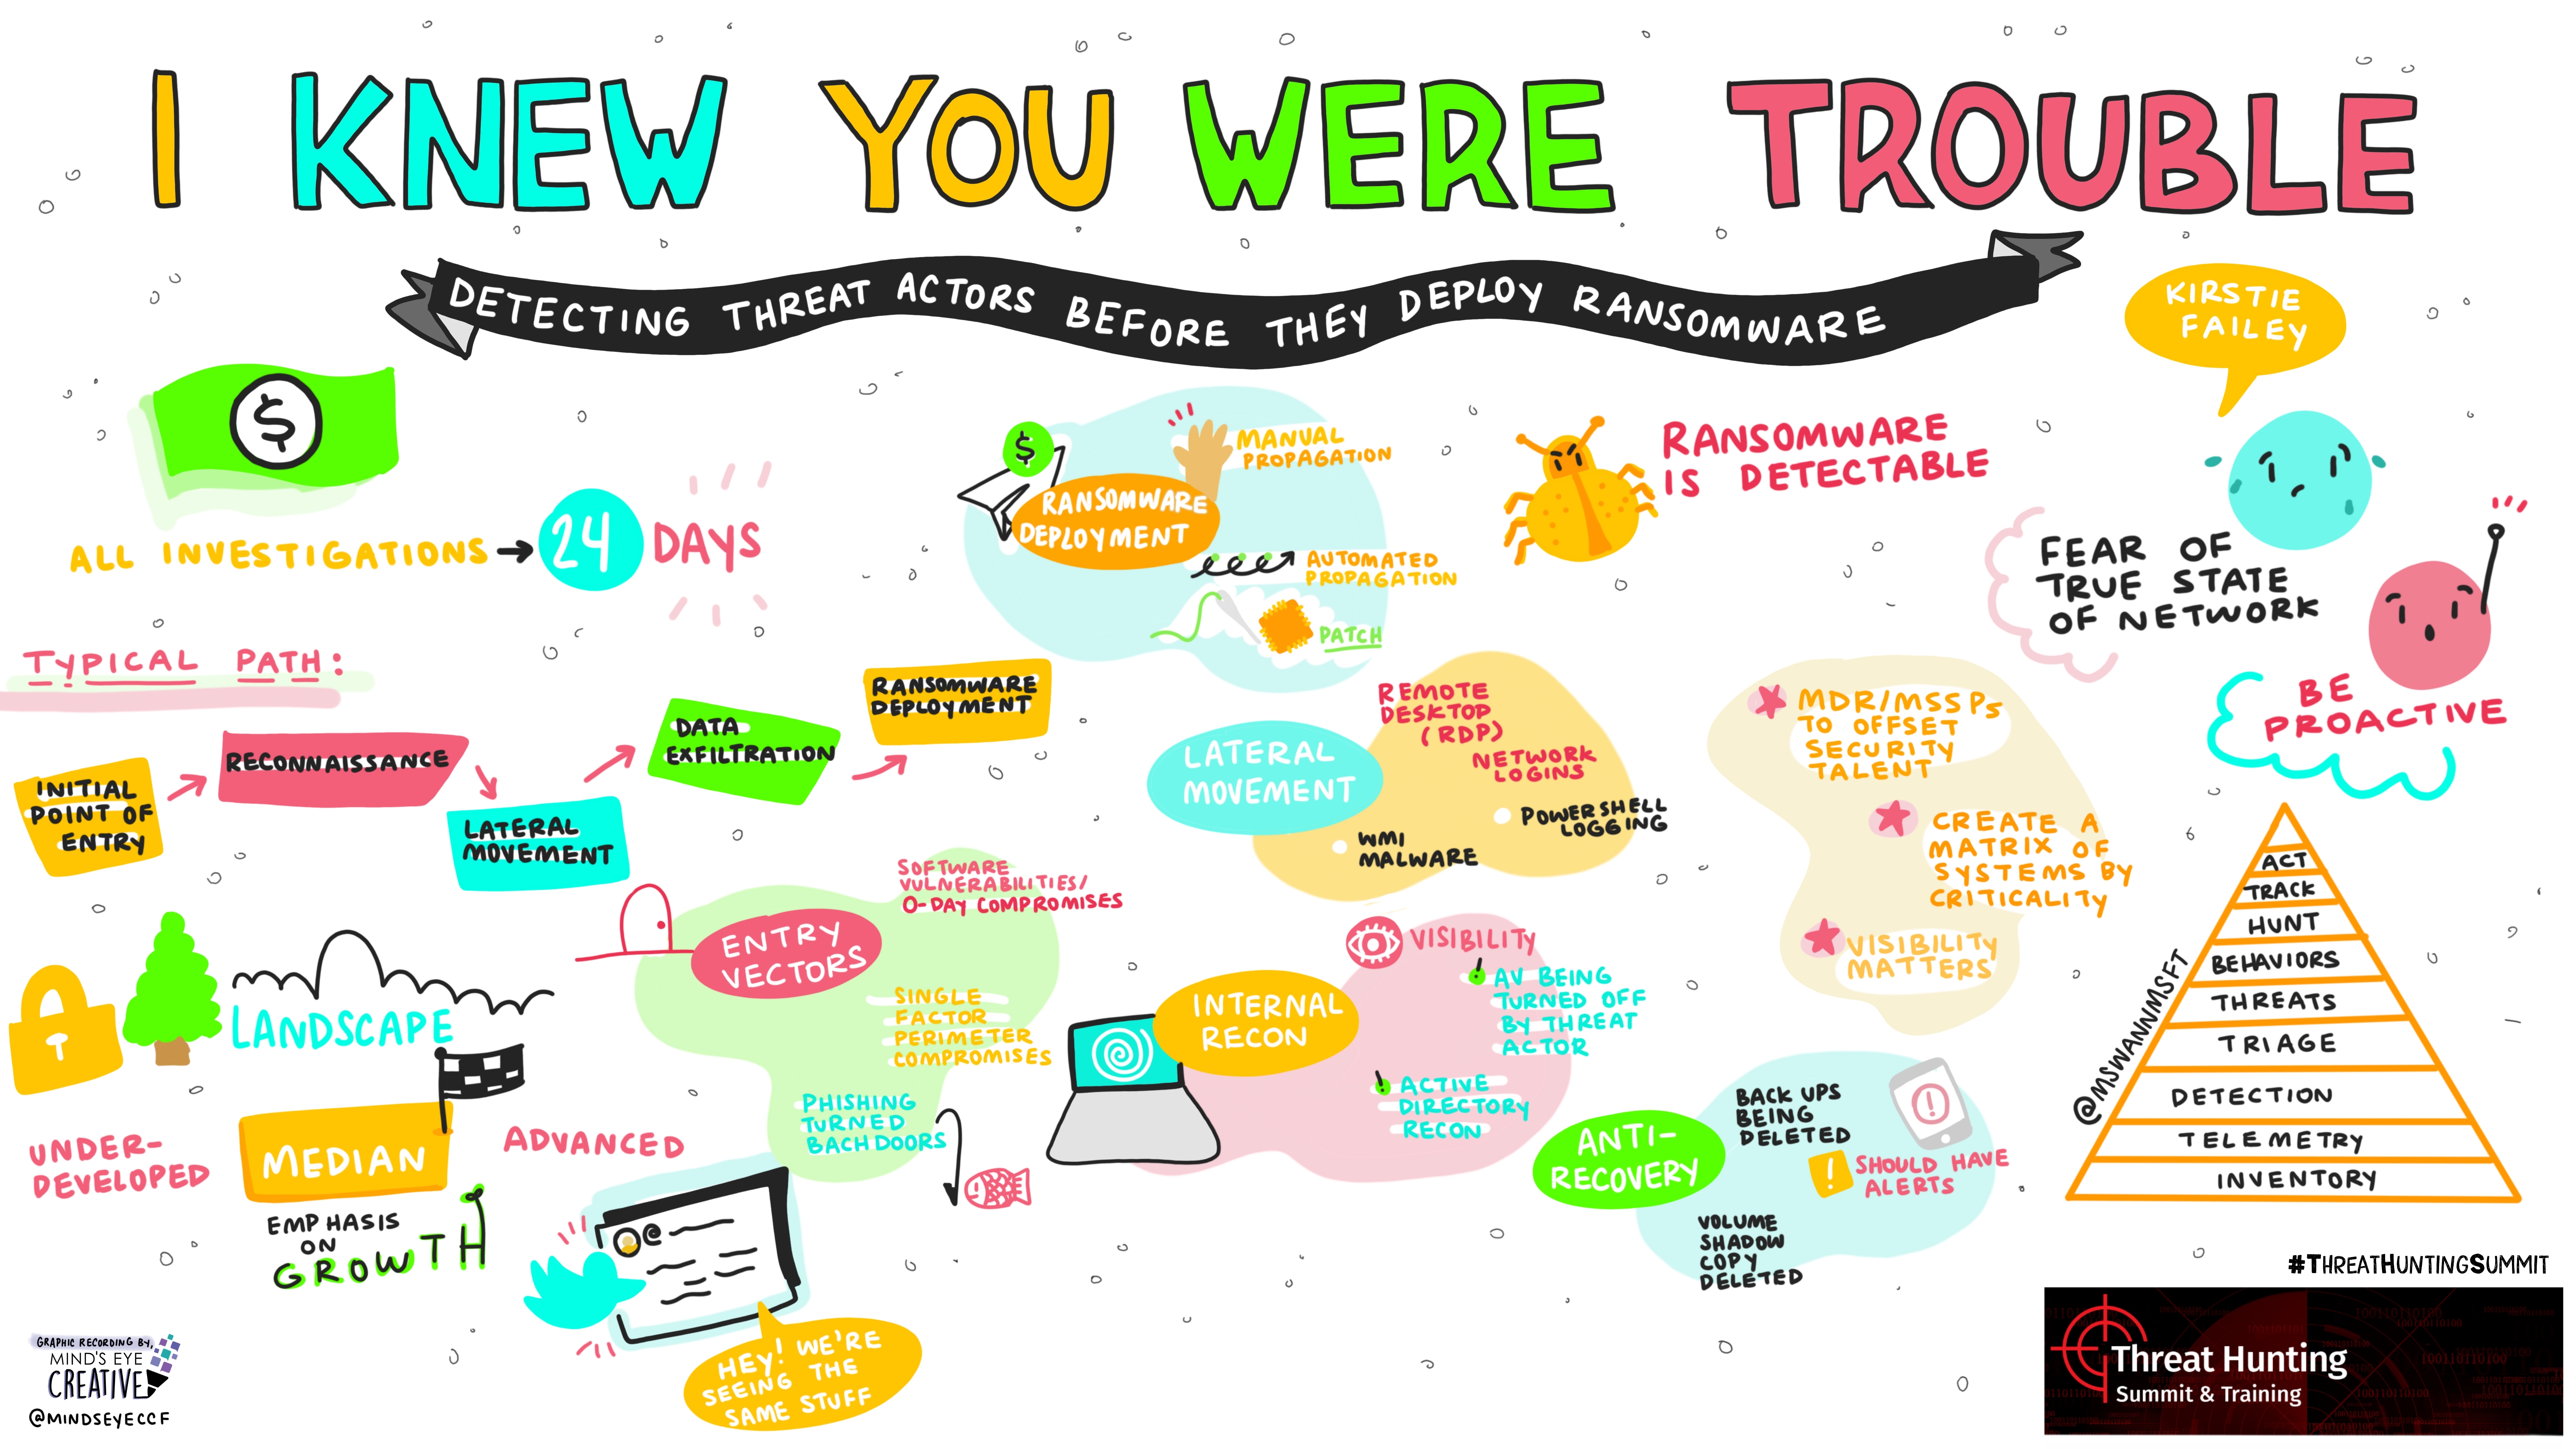 I KNEW YOU WERE TROUBLE
DETECTING THREAT ACTORS BEFORE THEY DEPLOY RANSOMWARE
KIRSTIE
FAILEY
$
ALL INVESTIGATIONS → 24 DAYS
$
RANSOMWARE
DEPLOYMENT
MANUAL
PROPAGATION
AUTOMATED
PROPAGATION
PATCH
RANSOMWARE
IS DETECTABLE
FEAR OF
TRUE STATE
OF NETWORK
BE
PROACTIVE
TYPICAL PATH:
INITIAL
POINT OF
ENTRY
RECONNAISSANCE
LATERAL
MOVEMENT
DATA
EXFILTRATION
RANSOMWARE
DEPLOYMENT
LATERAL
MOVEMENT
REMOTE
DESKTOP
(RDP)
NETWORK
LOGINS
POWERSHELL
LOGGING
WMI
MALWARE
MDR/MSSPs
TO OFFSET
SECURITY
TALENT
CREATE A
MATRIX OF
SYSTEMS BY
CRITICALITY
VISIBILITY
MATTERS
ENTRY
VECTORS
SOFTWARE
VULNERABILITIES/
0-DAY COMPROMISES
SINGLE
FACTOR
PERIMETER
COMPROMISES
PHISHING
TURNED
BACHDOORS
INTERNAL
RECON
VISIBILITY
AV BEING
TURNED OFF
BY THREAT
ACTOR
ACTIVE
DIRECTORY
RECON
ANTI-
RECOVERY
BACK UPS
BEING
DELETED
!
! SHOULD HAVE
ALERTS
VOLUME
SHADOW
COPY
DELETED
LANDSCAPE
UNDER-
DEVELOPED
MEDIAN
ADVANCED
EMPHASIS
ON
GROWTH
@
HEY! WE'RE
SEEING THE
SAME STUFF
@MSWANNMSFT
ACT
TRACK
HUNT
BEHAVIORS
THREATS
TRIAGE
DETECTION
TELEMETRY
INVENTORY
#THREATHUNTINGSUMMIT
Threat Hunting
Summit & Training
GRAPHIC RECORDING BY,
MIND'S EYE
CREATIVE
@MINDSEYECCF